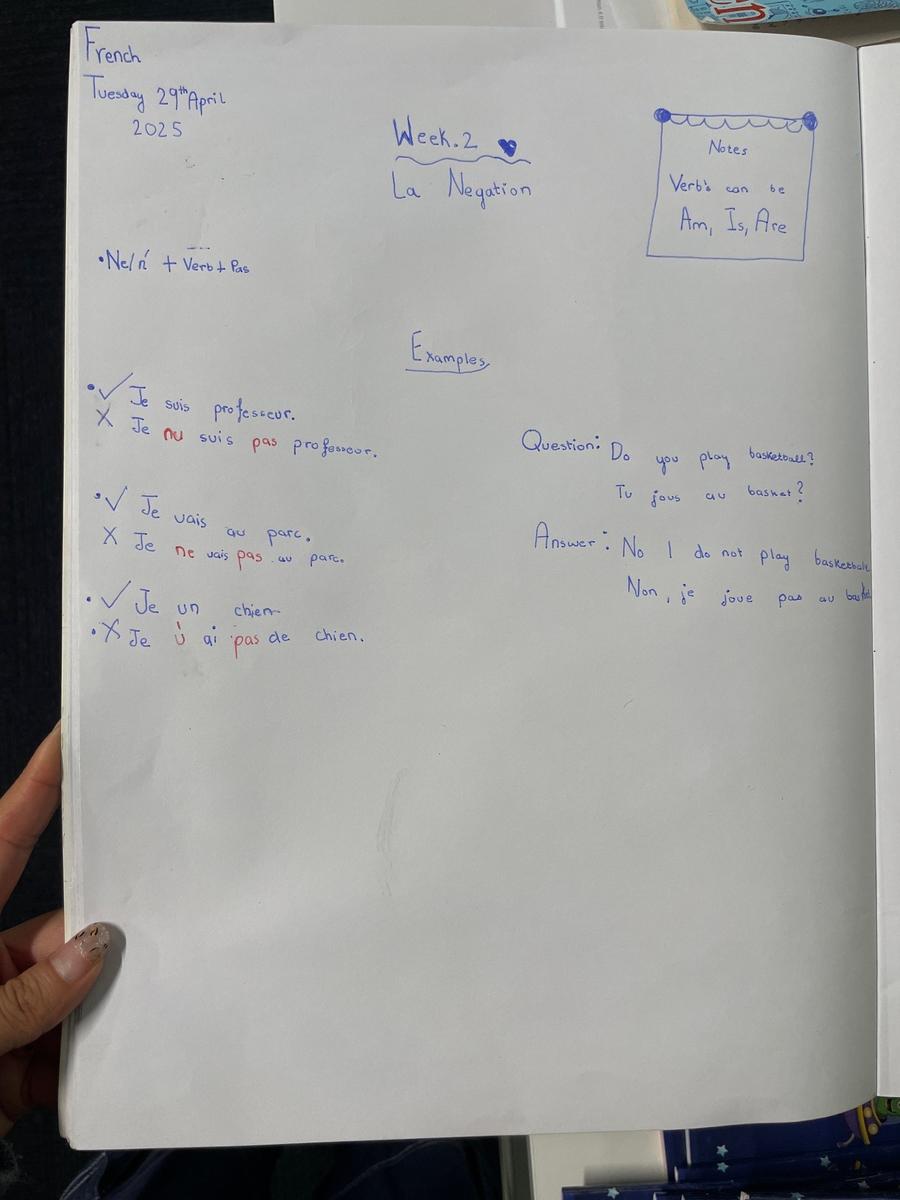 French
Tuesday 29th April
2025
Week.2
La Negation
Notes
Verb's can be
Am, Is, Are
•Ne/n' + Verb + Pas
Examples
•✓ Je suis professeur.
X Je nu suis pas professeur.
•✓ Je vais au parc.
X Je ne vais pas au parc.
•✓ Je un chien
•X Je ai pas de chien.
Question: Do you play basketball?
Tu jous au basket?
Answer: No I do not play basketball
Non, je joue pas au